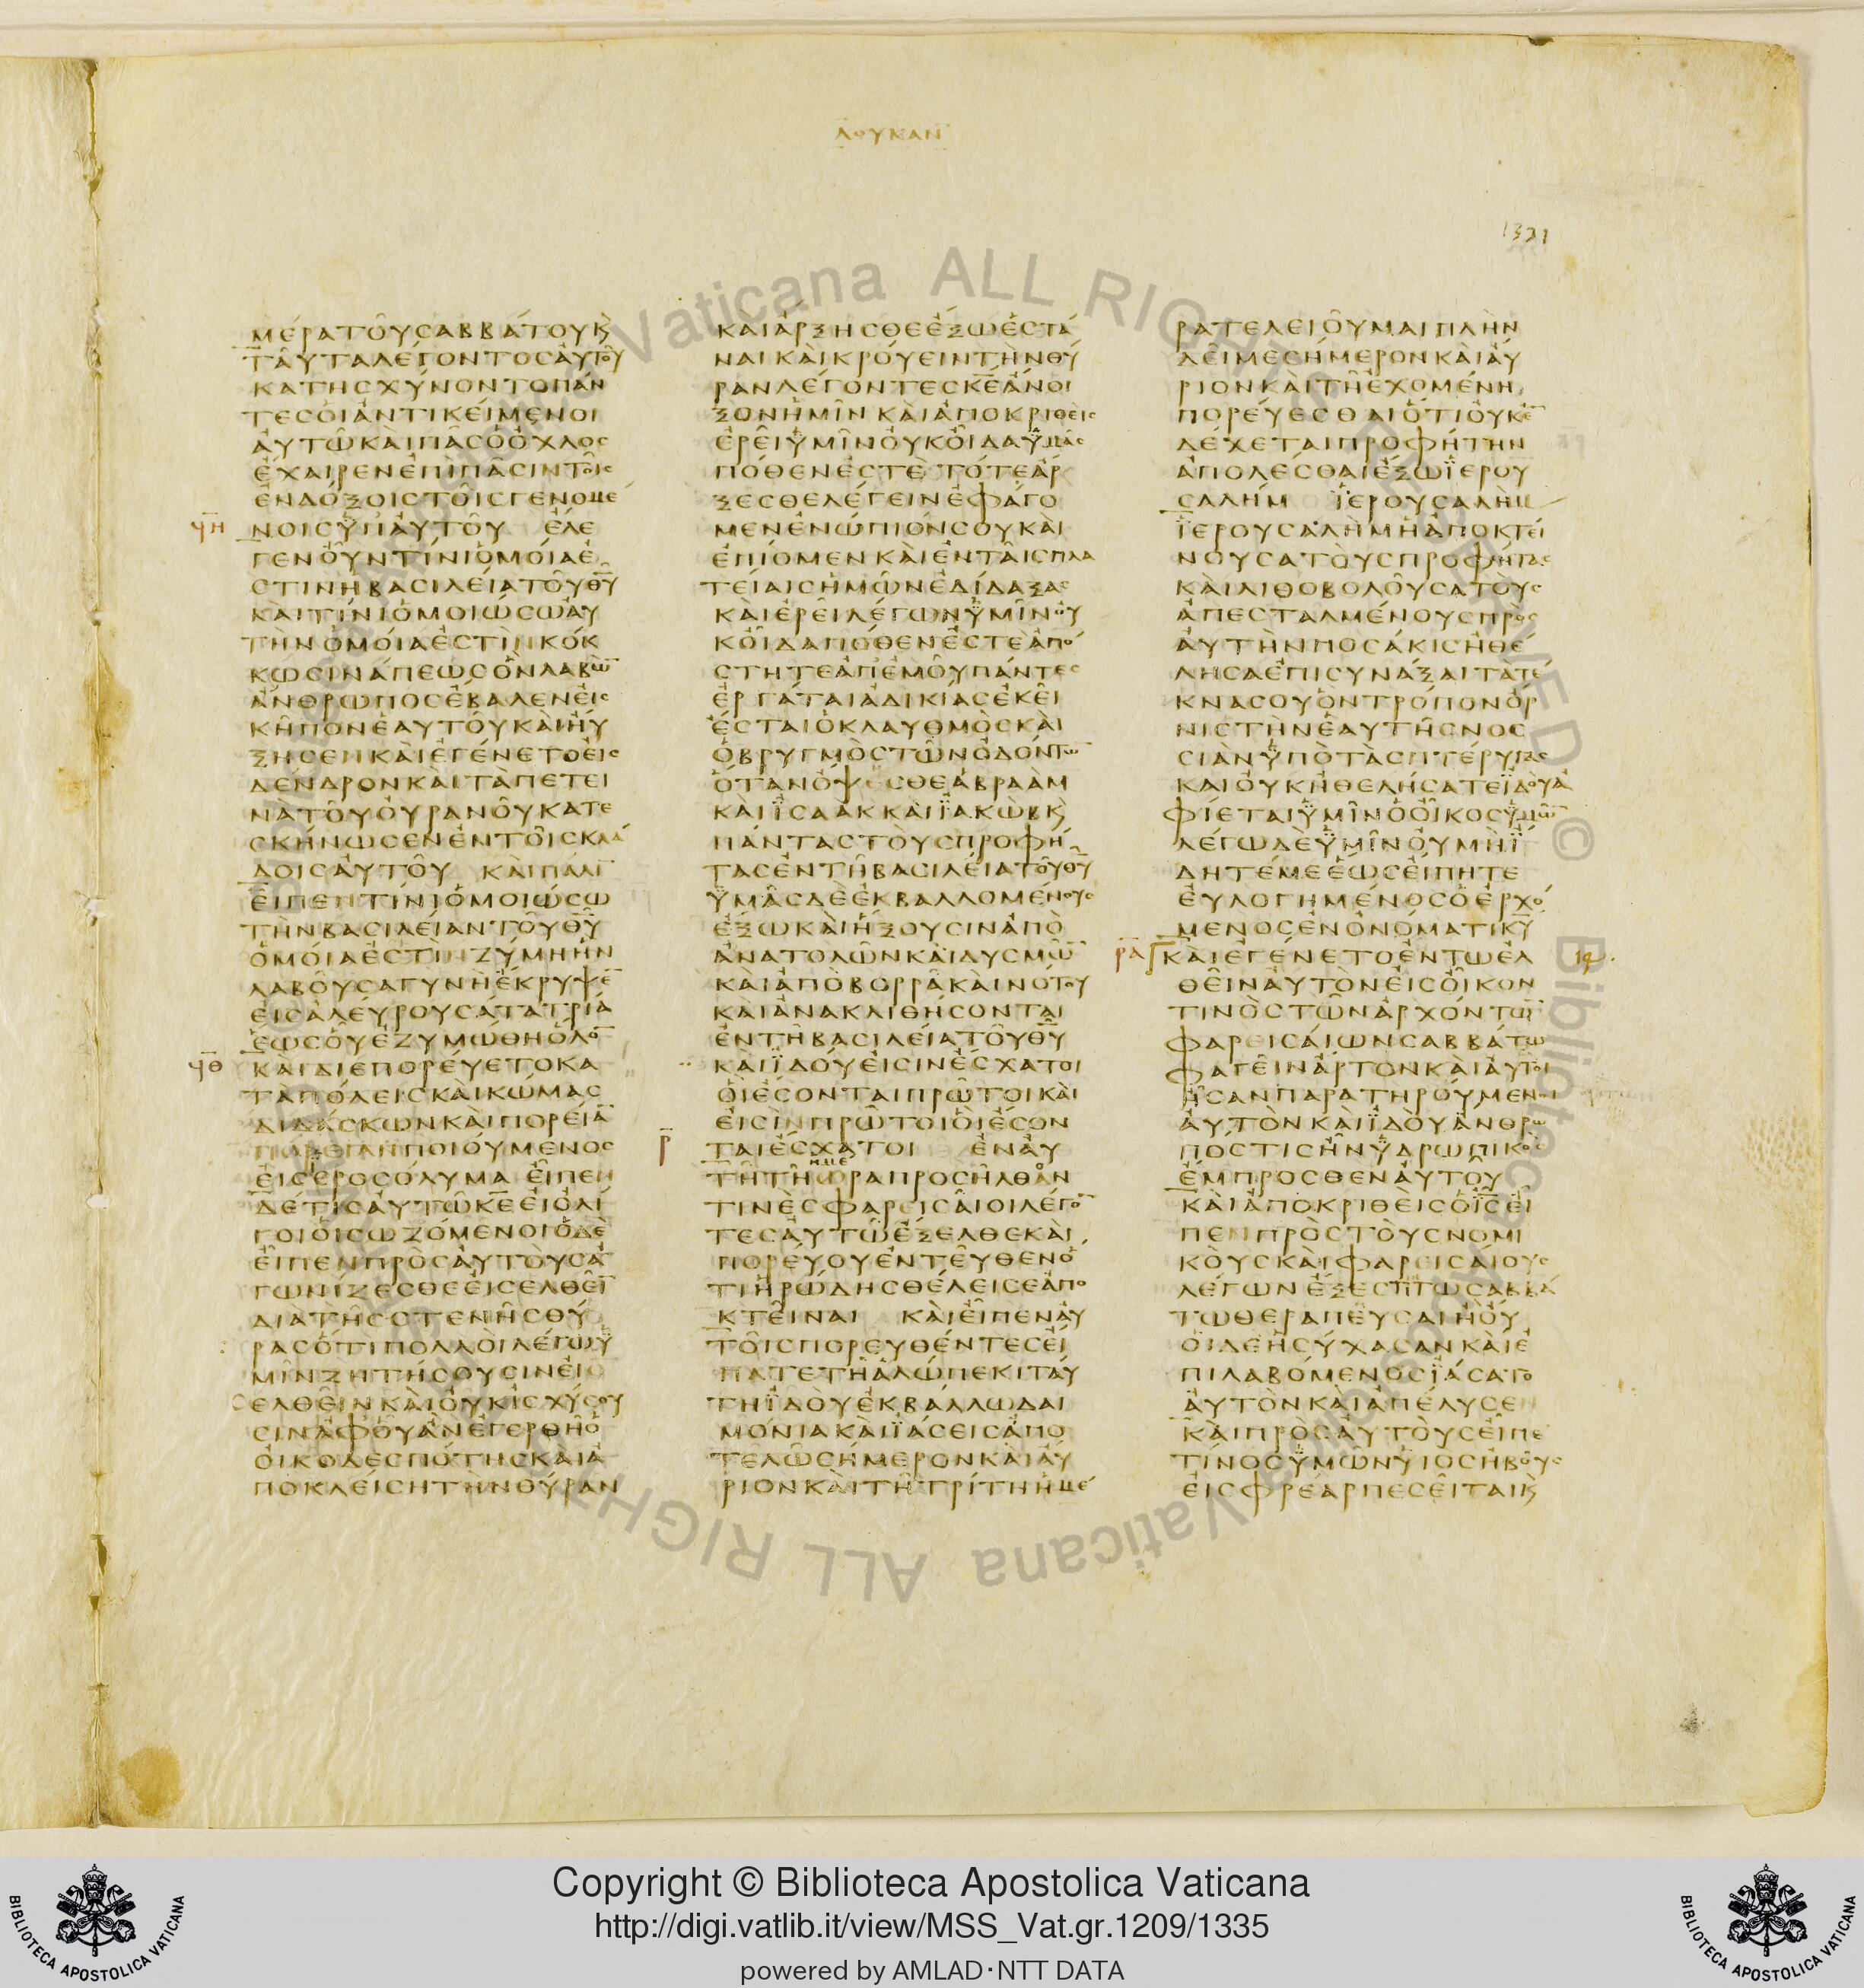 ΛΟΥΚΑΝ
1321
ΜΕΡΑΤΟΥΣΑΒΒΑΤΟΥΚϗ
ΤΑΥΤΑΛΕΓΟΝΤΟΣΑΥΤΟΥ
ΚΑΤΗΣΧΥΝΟΝΤΟΠΑΝ
ΤΕΣΟΙΑΝΤΙΚΕΙΜΕΝΟΙ
ΑΥΤΩΚΑΙΠΑΣΟΟΧΛΟΣ
ΕΧΑΙΡΕΝΕΠΙΠΑΣΙΝΤΟΙΣ
ΕΝΔΟΞΟΙΣΤΟΙΣΓΕΝΟΜΕ
ϟΗ ΝΟΙΣΫΠΑΥΤΟΥ ΕΛΕ
ΓΕΝΟΥΝΤΙΝΙΟΜΟΙΑΕ
ΣΤΙΝΗΒΑΣΙΛΕΙΑΤΟΥΘΥ
ΚΑΙΤΙΝΙΟΜΟΙΩΣΩΑΥ
ΤΗΝΟΜΟΙΑΕΣΤΙΝΚΟΚ
ΚΩΣΙΝΑΠΕΩΣΟΝΛΑΒΩ̅
ΑΝΘΡΩΠΟΣΕΒΑΛΕΝΕΙΣ
ΚΗΠΟΝΕΑΥΤΟΥΚΑΙΗΥ
ΞΗΣΕΝΚΑΙΕΓΕΝΕΤΟΕΙΣ
ΔΕΝΔΡΟΝΚΑΙΤΑΠΕΤΕΙ
ΝΑΤΟΥΟΥΡΑΝΟΥΚΑΤΕ
ΣΚΗΝΩΣΕΝΕΝΤΟΙΣΚΛΑ
ΔΟΙΣΑΥΤΟΥ ΚΑΙΠΑΛΙ̅
ΕΙΠΕΝΤΙΝΙΟΜΟΙΩΣΩ
ΤΗΝΒΑΣΙΛΕΙΑΝΤΟΥΘΥ
ΟΜΟΙΑΕΣΤΙΝΖΥΜΗΗΝ
ΛΑΒΟΥΣΑΓΥΝΗΕΚΡΥΨΕ̅
ΕΙΣΑΛΕΥΡΟΥΣΑΤΑΤΡΙΑ
ΕΩΣΟΥΕΖΥΜΩΘΗΟΛΟ̅
ϟΘ ΚΑΙΔΙΕΠΟΡΕΥΕΤΟΚΑ
ΤΑΠΟΛΕΙΣΚΑΙΚΩΜΑΣ
ΔΙΔΑΣΚΩΝΚΑΙΠΟΡΕΙΑ̅
ΠΟΙΟΥΜΕΝΟΣ
ΕΙΣΙΕΡΟΣΟΛΥΜΑ ΕΙΠΕΝ
ΔΕΤΙΣΑΥΤΩΚΕΕΙΟΛΙ
ΓΟΙΟΙΣΩΖΟΜΕΝΟΙΟΔΕ
ΕΙΠΕΝΠΡΟΣΑΥΤΟΥΣΑ
ΓΩΝΙΖΕΣΘΕΕΙΣΕΛΘΕΙ̅
ΔΙΑΤΗΣΣΤΕΝΗΣΘΥ
ΡΑΣΟΤΙΠΟΛΛΟΙΛΕΓΩΫ
ΜΙΝΖΗΤΗΣΟΥΣΙΝΕΙΣ
ΕΛΘΕΙΝΚΑΙΟΥΚΙΣΧΥΣΟΥ
ΣΙΝΑΦΟΥΑΝΕΓΕΡΘΗΟ
ΟΙΚΟΔΕΣΠΟΤΗΣΚΑΙΑ
ΠΟΚΛΕΙΣΗΤΗΝΘΥΡΑΝ
ΚΑΙΑΡΞΗΣΘΕΕΞΩΕΣΤΑ
ΝΑΙΚΑΙΚΡΟΥΕΙΝΤΗΝΘΥ
ΡΑΝΛΕΓΟΝΤΕΣΚΕΑΝΟΙ
ΞΟΝΗΜΙΝΚΑΙΑΠΟΚΡΙΘΕΙΣ
ΕΡΕΙΫΜΙΝΟΥΚΟΙΔΑΫΜΑΣ
ΠΟΘΕΝΕΣΤΕ ΤΟΤΕΑΡ
ΞΕΣΘΕΛΕΓΕΙΝΕΦΑΓΟ
ΜΕΝΕΝΩΠΙΟΝΣΟΥΚΑΙ
ΕΠΙΟΜΕΝΚΑΙΕΝΤΑΙΣΠΛΑ
ΤΕΙΑΙΣΗΜΩΝΕΔΙΔΑΞΑΣ
ΚΑΙΕΡΕΙΛΕΓΩΝΫΜΙΝΟΥ
ΚΟΙΔΑΠΟΘΕΝΕΣΤΕΑΠΟ
ΣΤΗΤΕΑΠΕΜΟΥΠΑΝΤΕΣ
ΕΡΓΑΤΑΙΑΔΙΚΙΑΣΕΚΕΙ
ΕΣΤΑΙΟΚΛΑΥΘΜΟΣΚΑΙ
ΟΒΡΥΓΜΟΣΤΩΝΟΔΟΝΤΩ̅
ΟΤΑΝΟΨΕΣΘΕΑΒΡΑΑΜ
ΚΑΙΪΣΑΑΚΚΑΙΪΑΚΩΒΚϗ
ΠΑΝΤΑΣΤΟΥΣΠΡΟΦΗ
ΤΑΣΕΝΤΗΒΑΣΙΛΕΙΑΤΟΥΘΥ
ΫΜΑΣΔΕΕΚΒΑΛΛΟΜΕΝΟΥΣ
ΕΞΩΚΑΙΗΞΟΥΣΙΝΑΠΟ
ΑΝΑΤΟΛΩΝΚΑΙΔΥΣΜΩ̅
ΚΑΙΑΠΟΒΟΡΡΑΚΑΙΝΟΤΟΥ
ΚΑΙΑΝΑΚΛΙΘΗΣΟΝΤΑΙ
ΕΝΤΗΒΑΣΙΛΕΙΑΤΟΥΘΥ
ΚΑΙΪΔΟΥΕΙΣΙΝΕΣΧΑΤΟΙ
ΟΙΕΣΟΝΤΑΙΠΡΩΤΟΙΚΑΙ
ΕΙΣΙΝΠΡΩΤΟΙΟΙΕΣΟΝ
Ρ ΤΑΙΕΣΧΑΤΟΙ ΕΝΑΥ
ΤΗΤΗΩΡΑΠΡΟΣΗΛΘΑΝ
ΤΙΝΕΣΦΑΡΕΙΣΑΙΟΙΛΕΓΟ̅
ΤΕΣΑΥΤΩΕΞΕΛΘΕΚΑΙ
ΠΟΡΕΥΟΥΕΝΤΕΥΘΕΝΟ
ΤΙΗΡΩΔΗΣΘΕΛΕΙΣΕΑΠΟ
ΚΤΕΙΝΑΙ ΚΑΙΕΙΠΕΝΑΥ
ΤΟΙΣΠΟΡΕΥΘΕΝΤΕΣΕΙ
ΠΑΤΕΤΗΑΛΩΠΕΚΙΤΑΥ
ΤΗΪΔΟΥΕΚΒΑΛΛΩΔΑΙ
ΜΟΝΙΑΚΑΙΪΑΣΕΙΣΑΠΟ
ΤΕΛΩΣΗΜΕΡΟΝΚΑΙΑΥ
ΡΙΟΝΚΑΙΤΗΤΡΙΤΗΗΜΕ
ΡΑΤΕΛΕΙΟΥΜΑΙΠΛΗΝ
ΔΕΙΜΕΣΗΜΕΡΟΝΚΑΙΑΥ
ΡΙΟΝΚΑΙΤΗΕΧΟΜΕΝΗ
ΠΟΡΕΥΕΣΘΑΙΟΤΙΟΥΚΕ̅
ΔΕΧΕΤΑΙΠΡΟΦΗΤΗΝ
ΑΠΟΛΕΣΘΑΙΕΞΩΪΕΡΟΥ
ΣΑΛΗΜ ΪΕΡΟΥΣΑΛΗΜ
ΪΕΡΟΥΣΑΛΗΜΗΑΠΟΚΤΕΙ
ΝΟΥΣΑΤΟΥΣΠΡΟΦΗΤΑΣ
ΚΑΙΛΙΘΟΒΟΛΟΥΣΑΤΟΥΣ
ΑΠΕΣΤΑΛΜΕΝΟΥΣΠΡΟΣ
ΑΥΤΗΝΠΟΣΑΚΙΣΗΘΕ
ΛΗΣΑΕΠΙΣΥΝΑΞΑΙΤΑΤΕ
ΚΝΑΣΟΥΟΝΤΡΟΠΟΝΟΡ
ΝΙΣΤΗΝΕΑΥΤΗΣΝΟΣ
ΣΙΑΝΫΠΟΤΑΣΠΤΕΡΥΓΑΣ
ΚΑΙΟΥΚΗΘΕΛΗΣΑΤΕΪΔΟΥΑ
ΦΙΕΤΑΙΫΜΙΝΟΟΙΚΟΣΫΜΩ̅
ΛΕΓΩΔΕΫΜΙΝΟΥΜΗΪ
ΔΗΤΕΜΕΕΩΣΕΙΠΗΤΕ
ΕΥΛΟΓΗΜΕΝΟΣΟΕΡΧΟ
ΜΕΝΟΣΕΝΟΝΟΜΑΤΙΚΥ
ΡΑ ΚΑΙΕΓΕΝΕΤΟΕΝΤΩΕΛ
ΘΕΙΝΑΥΤΟΝΕΙΣΟΙΚΟΝ
ΤΙΝΟΣΤΩΝΑΡΧΟΝΤΩ̅
ΦΑΡΕΙΣΑΙΩΝΣΑΒΒΑΤΩ
ΦΑΓΕΙΝΑΡΤΟΝΚΑΙΑΥΤΟΙ
ΗΣΑΝΠΑΡΑΤΗΡΟΥΜΕΝΟΙ
ΑΥΤΟΝΚΑΙΪΔΟΥΑΝΘΡΩ
ΠΟΣΤΙΣΗΝΫΔΡΩΠΙΚΟΣ
ΕΜΠΡΟΣΘΕΝΑΥΤΟΥ
ΚΑΙΑΠΟΚΡΙΘΕΙΣΟΙΣΕΙ
ΠΕΝΠΡΟΣΤΟΥΣΝΟΜΙ
ΚΟΥΣΚΑΙΦΑΡΕΙΣΑΙΟΥΣ
ΛΕΓΩΝΕΞΕΣΤΙΤΩΣΑΒΒΑ
ΤΩΘΕΡΑΠΕΥΣΑΙΗΟΥ
ΟΙΔΕΗΣΥΧΑΣΑΝΚΑΙΕ
ΠΙΛΑΒΟΜΕΝΟΣΪΑΣΑΤΟ
ΑΥΤΟΝΚΑΙΑΠΕΛΥΣΕΝ
ΚΑΙΠΡΟΣΑΥΤΟΥΣΕΙΠΕ
ΤΙΝΟΣΫΜΩΝΫΙΟΣΗΒΟΥΣ
ΕΙΣΦΡΕΑΡΠΕΣΕΙΤΑΙΚϗ
Vaticana ALL RIGHTS RESERVED © Biblioteca Vaticana ALL RIGHT
Copyright © Biblioteca Apostolica Vaticana
http://digi.vatlib.it/view/MSS_Vat.gr.1209/1335
powered by AMLAD·NTT DATA
BIBLIOTECA APOSTOLICA VATICANA
BIBLIOTECA APOSTOLICA VATICANA